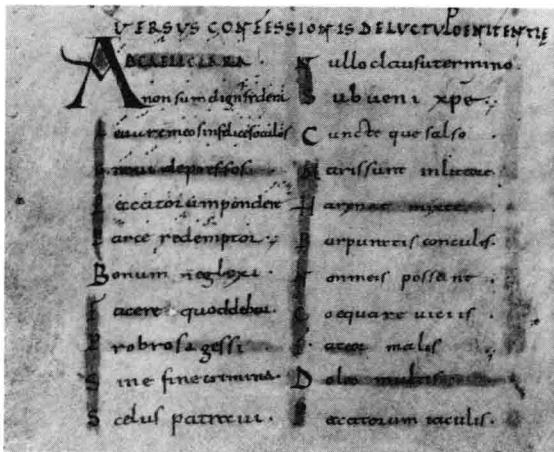 VERSUS CONFESSIONIS DE LUCTU PENITENTIĘ
AD CAELI CLARA
non sum dign' sidera
Leuare meos infelices oculos
Graui depressos.
Peccatorum pondere
Parce redemptor.
Bonum neglexi.
Facere quod debui.
Probrosa gessi
Sine fine crimina.
Scelus patraui.
Nullo clausu termino.
Subueni xpe.
Cuncte que salso
Maris sunt in litore
Harenae mixte
Parpunctis conculis.
Non meis possent
Coequare uiciis.
Fateor malis
Doleo multis
Peccatorum iaculis.